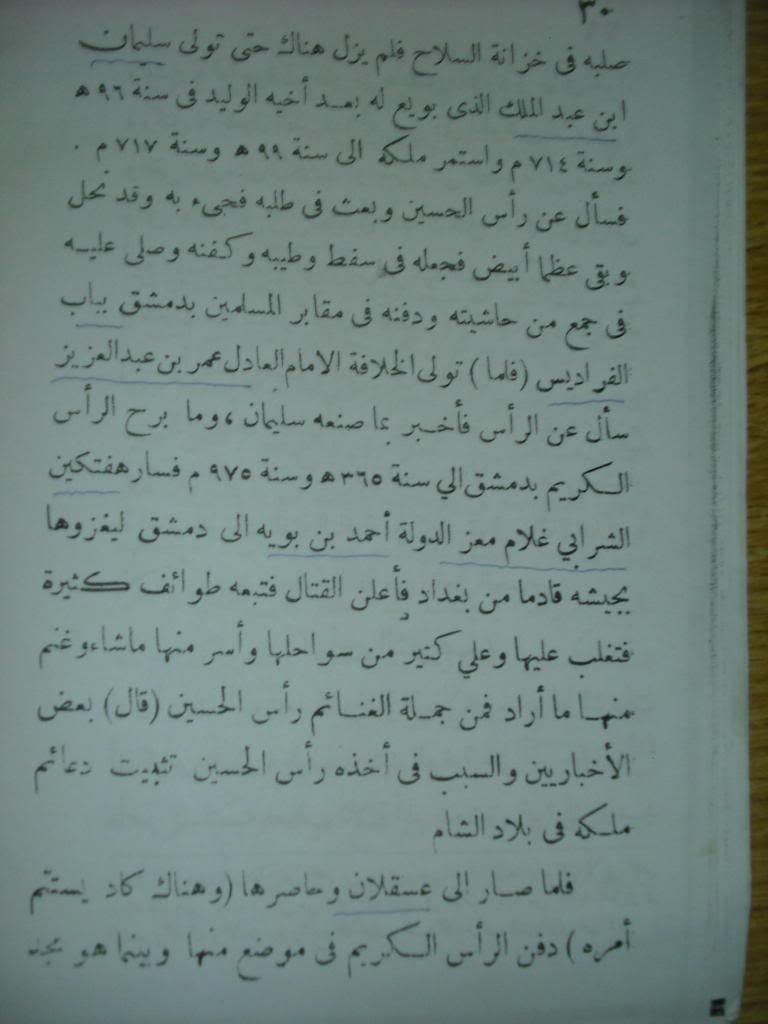 ٣٠
صلبه فى خزانة السلاح فلم يزل هناك حتى تولى سليمان
ابن عبد الملك الذى بويع له بعد أخيه الوليد فى سنة ٩٦ ھ
وسنة ٧١٤ م واستمر ملكه الى سنة ٩٩ ھ وسنة ٧١٧ م .
فسأل عن رأس الحسين وبعث فى طلبه فجىء به وقد نحل
وبقى عظما أبيض فجعله فى سفط وطيبه وكفنه وصلى عليه
فى جمع من حاشيته ودفنه فى مقابر المسلمين بدمشق بباب
الفراديس (فلما) تولى الخلافة الامام العادل عمر بن عبد العزيز
سأل عن الرأس فأخبر بما صنعه سليمان ، وما برح الرأس
الكريم بدمشق الي سنة ٣٦٥ ھ وسنة ٩٧٥ م فسار هفتكين
الشرابي غلام معز الدولة أحمد بن بويه الى دمشق ليغزوها
بجيشه قادما من بغداد فأعلن القتال فتبعه طوائف كثيرة
فتغلب عليها وعلي كثير من سواحلها وأسر منها ماشاء وغنم
منها ما أراد فمن جملة الغنائم رأس الحسين (قال) بعض
الأخباريين والسبب فى أخذه رأس الحسين تثبيت دعائم
ملكه فى بلاد الشام
فلما صار الى عسقلان وحاصرها (وهناك كاد يستتم
أمره) دفن الرأس الكريم فى موضع منها وبينما هو مجد